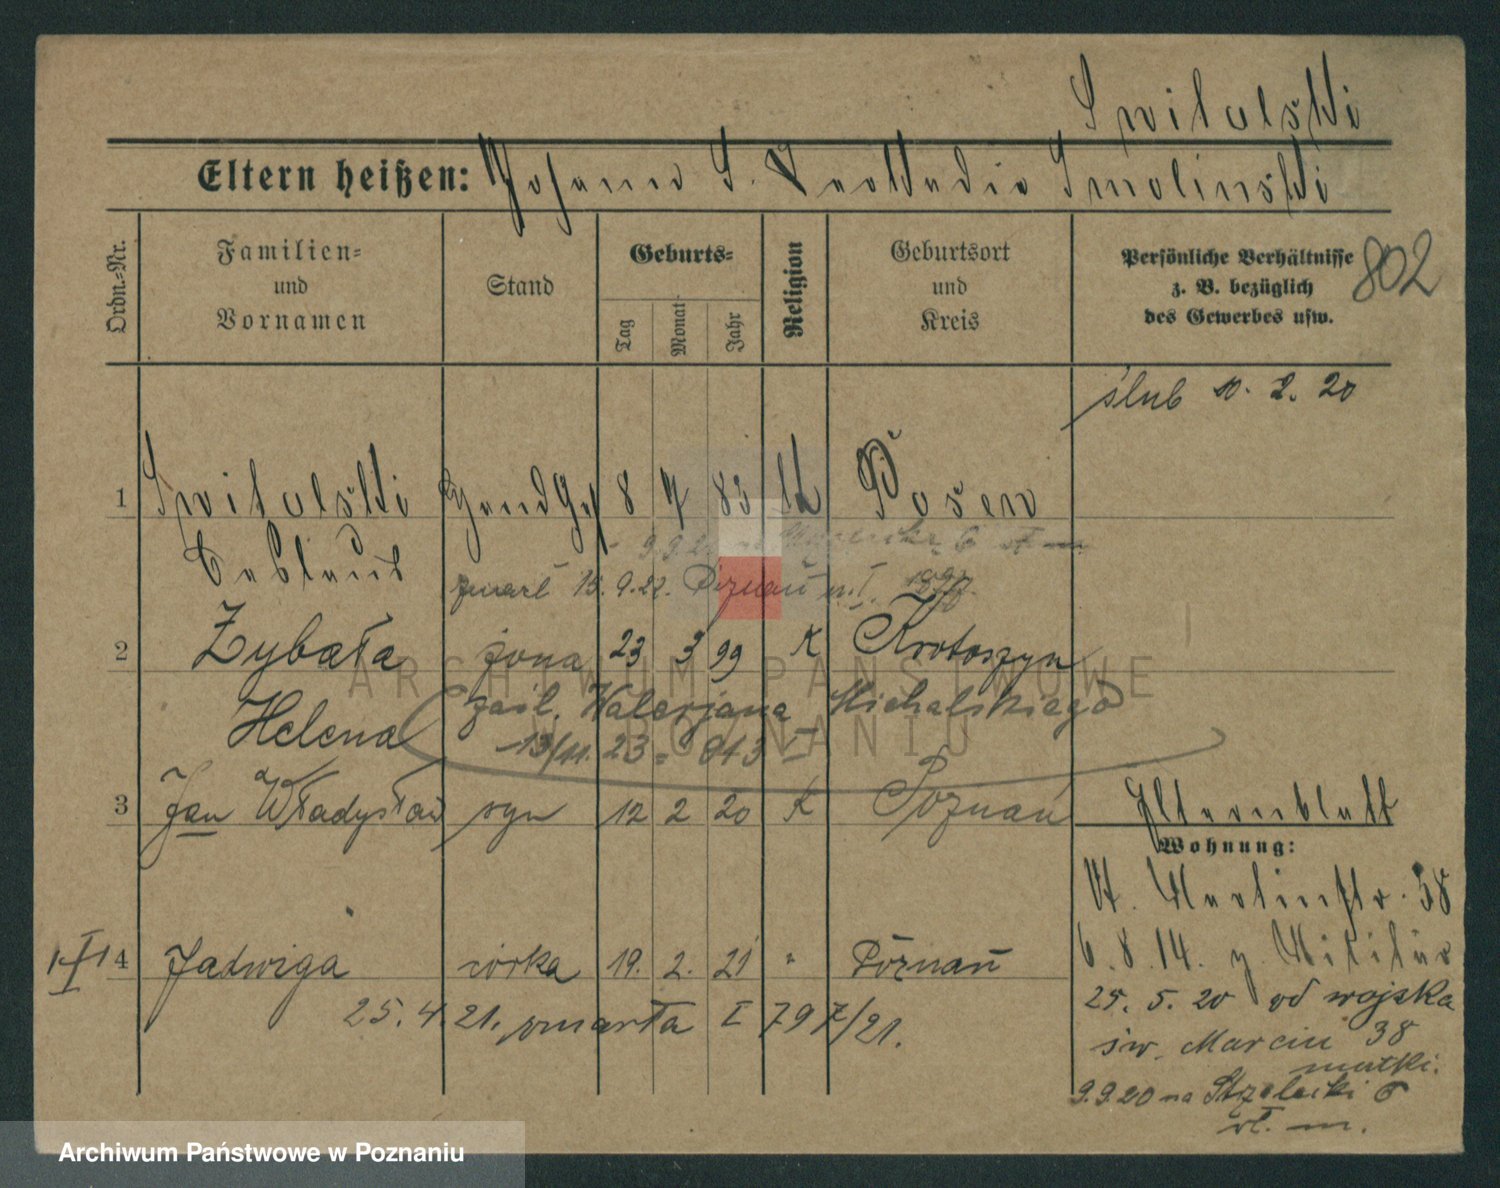 Switalski
Eltern heißen: Johann S. Leokadia Smolinski
Ordn.-Nr.
Familien-
und
Vornamen
Stand
Geburts-
Tag
Monat
Jahr
Religion
Geburtsort
und
Kreis
Persönliche Verhältnisse
z. B. bezüglich
des Gewerbes usw.
802
ślub 10. 2. 20
1 Switalski 8 7 83 k Posen
zmarł 15. 9. 22. Poznań I.
2 Zybała żona 23 3 99 K Krotoszyn
Helena
zaśl. Walerjana Michalskiego
13/11. 23 = 843 I
3 Jan Władysław syn 12 2 20 K Poznań
Elternblatt
Wohnung:
St. Martinstr. 38
6. 8. 14. z. Militär
25. 5. 20 od wojska
św. Marcin 38
matki.
9.9.20 na Strzelecki 6
wł. m.
4 Jadwiga córka 19. 2. 21 " Poznań
25. 4. 21. zmarła I 797/21.
ARCHIWUM PAŃSTWOWE
W POZNANIU
Archiwum Państwowe w Poznaniu